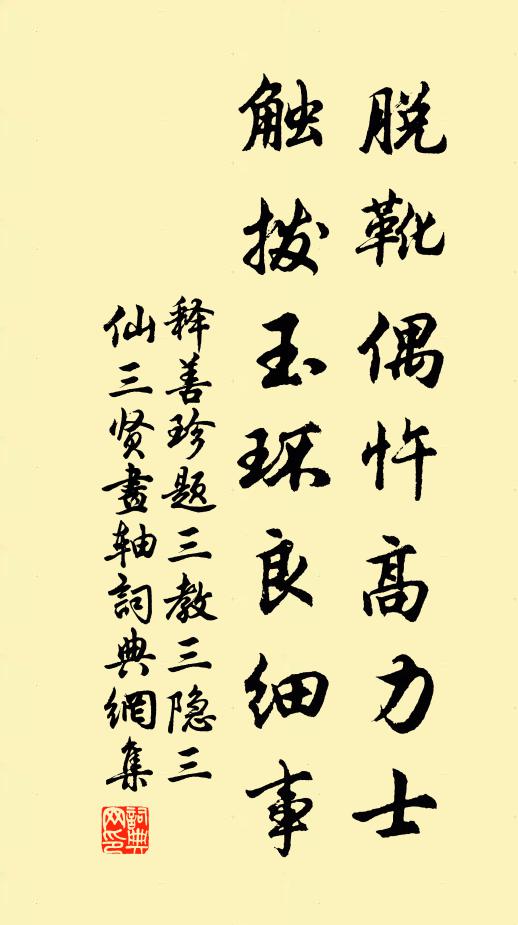 脱靴偶忤高力士
触拨玉环良细事
释善珍题三教三隐三
仙三贤畫轴詞典網集
詞典